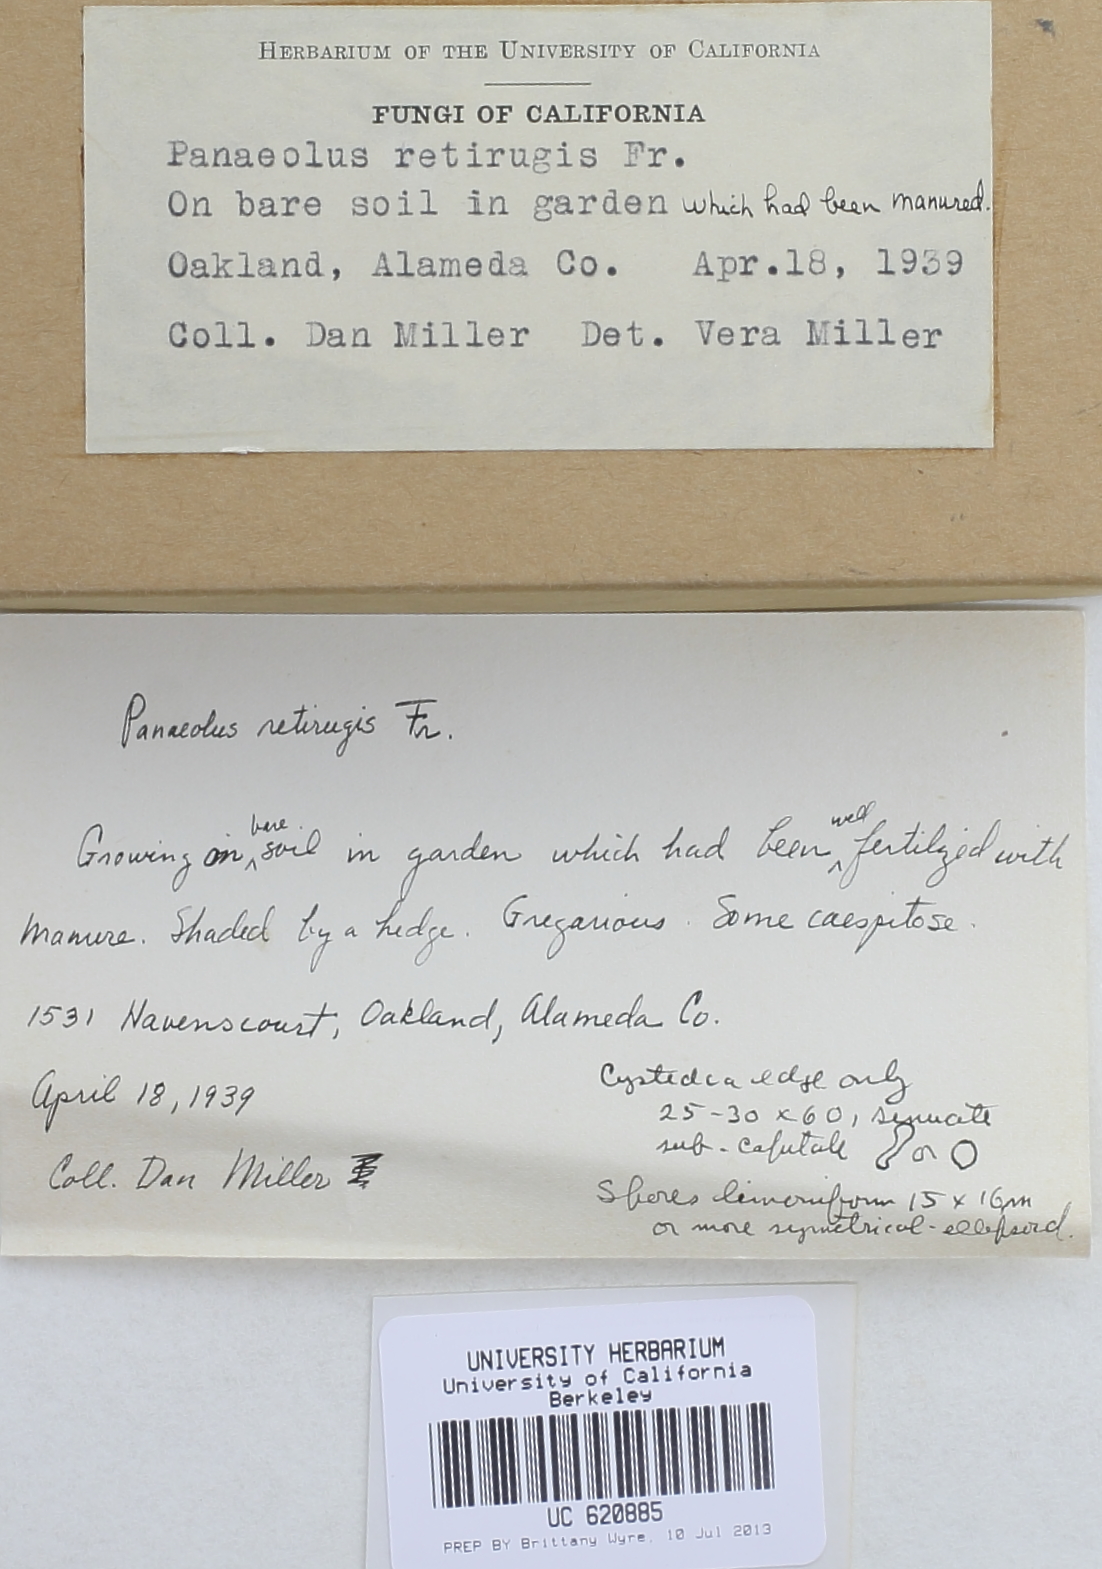 HERBARIUM OF THE UNIVERSITY OF CALIFORNIA
FUNGI OF CALIFORNIA
Panaeolus retirugis Fr.
On bare soil in garden which had been manured.
Oakland, Alameda Co. Apr.18, 1939
Coll. Dan Miller Det. Vera Miller
Panaeolus retirugis Fr.
Growing on bare soil in garden which had been well fertilized with
manure. Shaded by a hedge. Gregarious. Some caespitose.
1531 Havenscourt, Oakland, Alameda Co.
April 18, 1939
Coll. Dan Miller
Cystedia edge only
25-30 x 60, sinuate
sub-capitate or
Spores limoniform 15 x 16m
or more symetrical-ellipsoid.
UNIVERSITY HERBARIUM
University of California
Berkeley
UC 620885
PREP BY Brittany Wyre, 10 Jul 2013